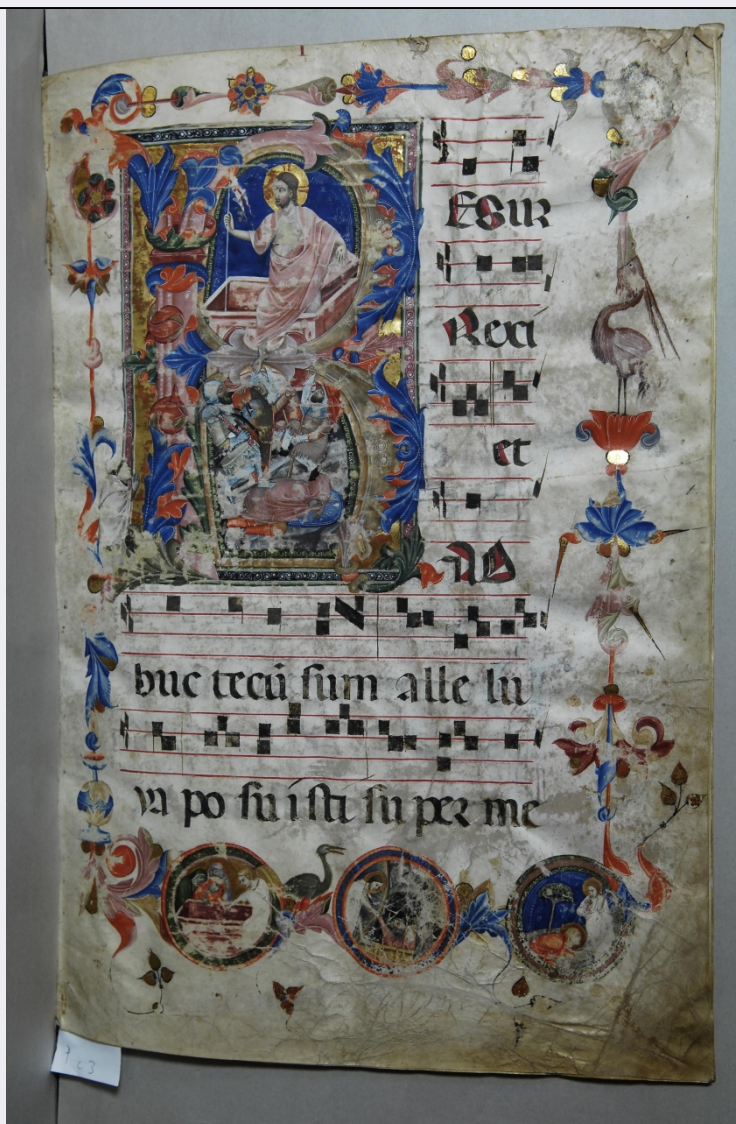 R
ESUR
Rexi
et
AD
huc tecū sum alle lu
ya po su i sti su per me